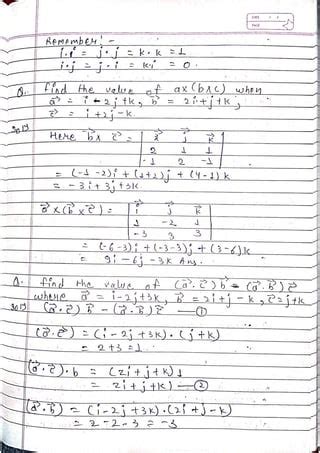 Remember! -
i.i = j.j = k.k = 1
i.j = j.i = k.i = 0.
Q. find the value of ax(bxc) when
a⃗ = i-2j+k, b⃗ = 2i+j+k,
c⃗ = i+2j-k.
Soln
Here b⃗x c⃗ = | i⃗ j⃗ k⃗ |
2 1 1
-1 2 -1
= (-1-2)i + (1+2)j + (4-1)k
= -3i+3j+3k.
a⃗ x(b⃗ x c⃗) = | i j k |
1 -2 1
-3 3 3
= (-6-3)i+(-3-3)j+(3-6)k
= 9i-6j-3k Ans.
Q. find the value of (a⃗.c⃗)b⃗ - (a⃗.b⃗)c⃗
where a⃗ = i-2j+3k, b⃗ = 2i+j-k, c⃗=j+k
Soln (a⃗.c⃗)b⃗ - (a⃗.b⃗)c⃗ — ①
(a⃗.c⃗) = (i-2j+3k).(j+k)
= 2+3=1
(a⃗.c⃗).b = (2i+j+k)1
= 2i+j+k) — ②
(a⃗.b⃗) = (i-2j+3k).(2i+j-k)
= 2-2-3 = -3